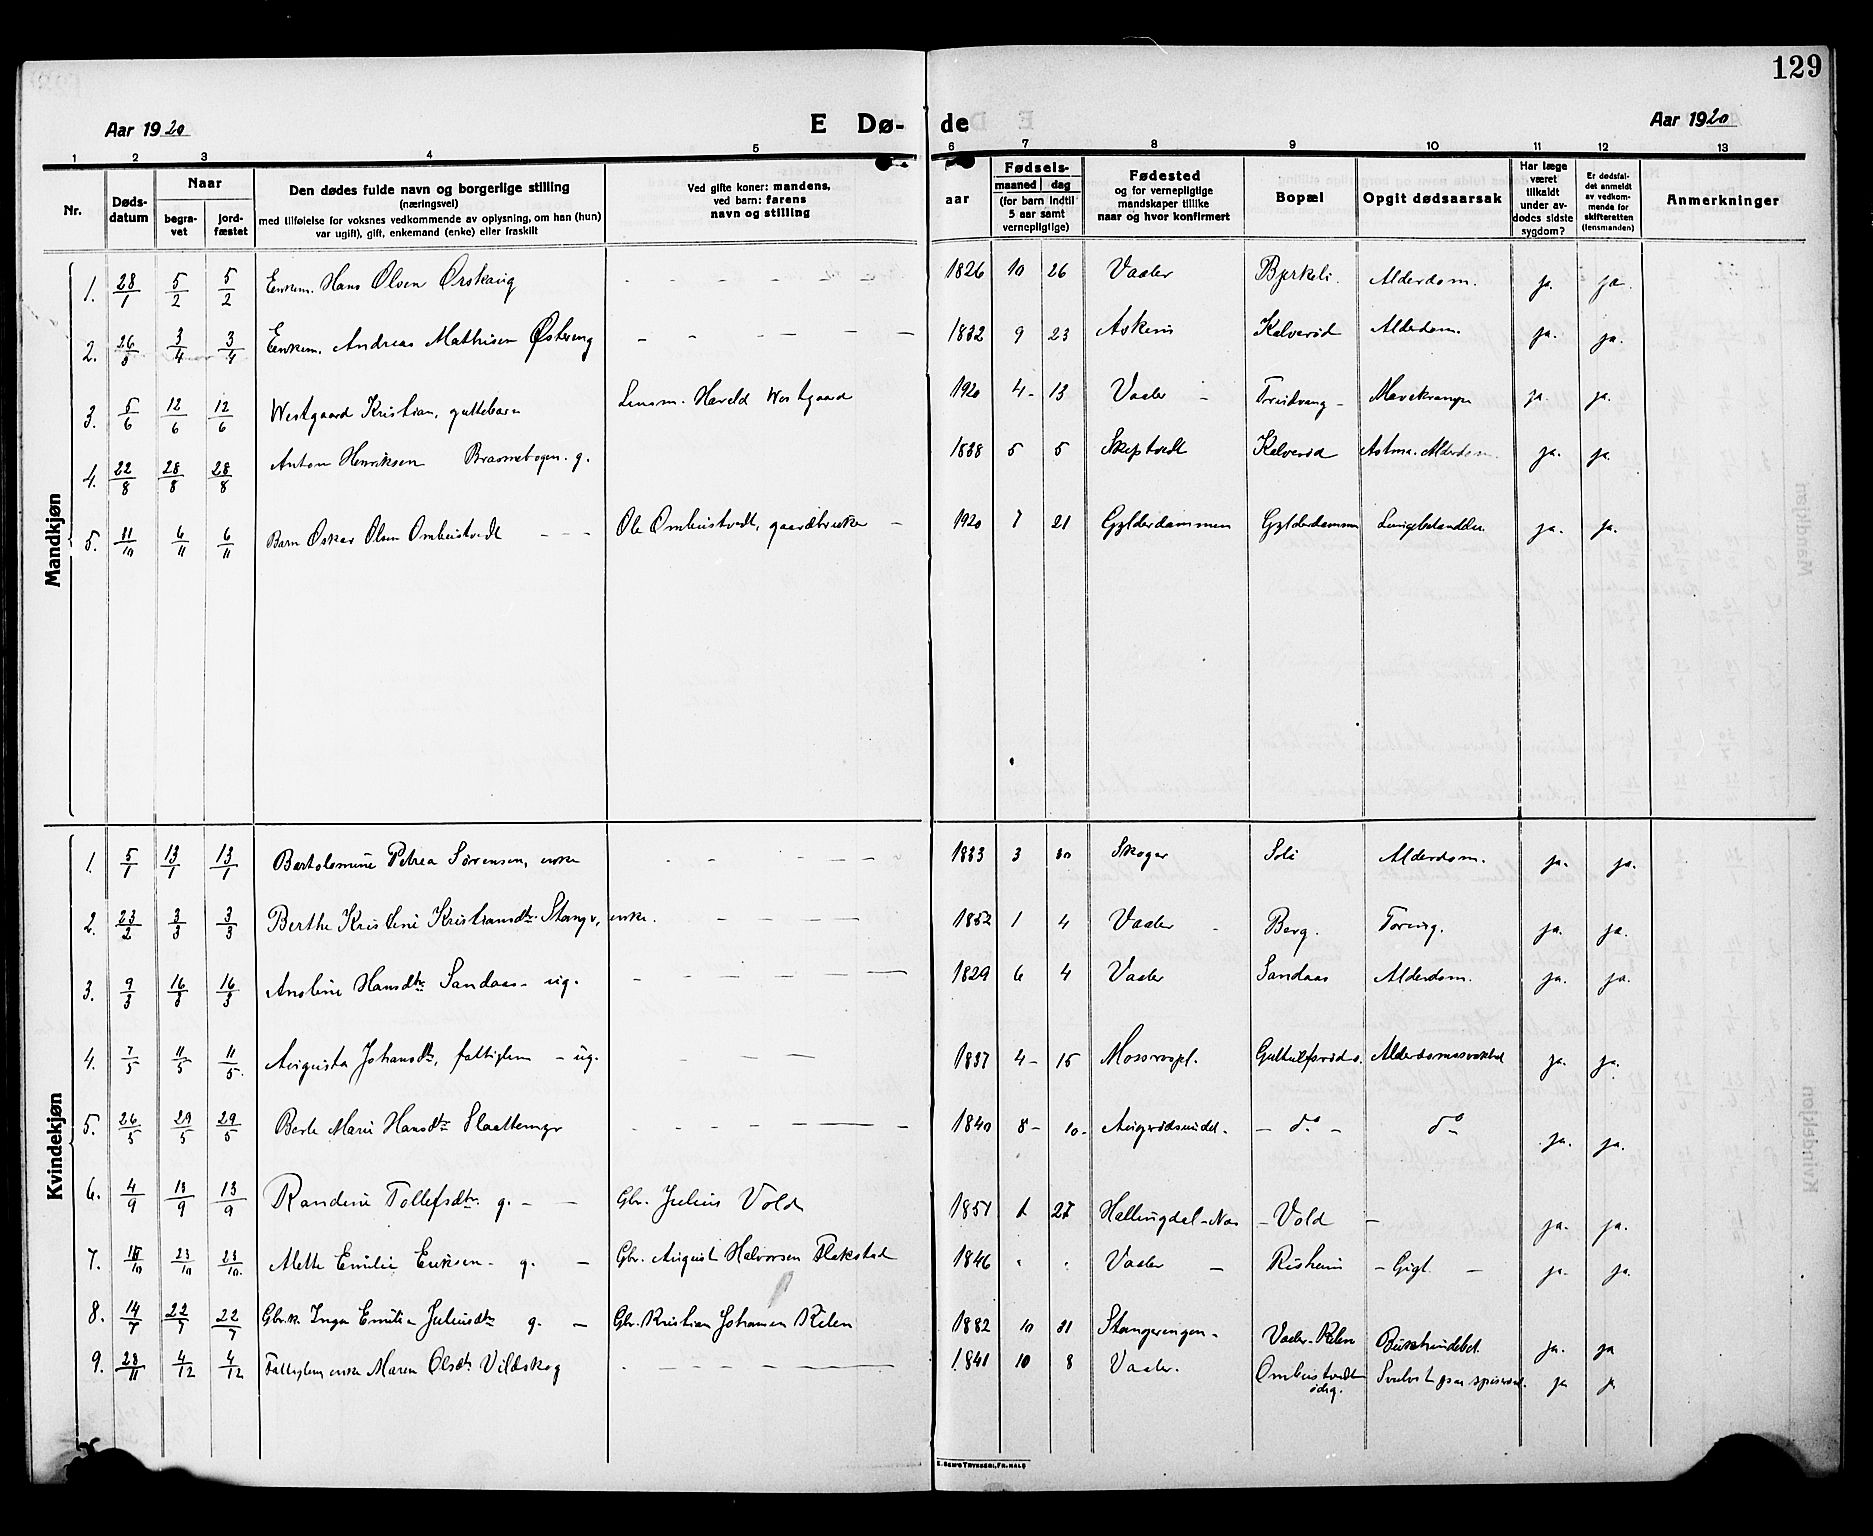 129
Aar 1920 E Dø- de Aar 1920
1 2 3 4 5 6 7 8 9 10 11 12 13
Nr. Døds-datum Naar begra-vet jord-fæstet Den dødes fulde navn og borgerlige stilling (næringsvei) med tilføielse for voksnes vedkommende av oplysning, om han (hun) var ugift), gift, enkemand (enke) eller fraskilt Ved gifte koner: mandens, ved barn: farens navn og stilling aar Fødsels- maaned dag (for barn indtil 5 aar samt vernepligtige) Fødested og for vernepligtige mandskaper tillike naar og hvor konfirmert Bopæl Opgit dødsaarsak Har læge været tilkaldt under av-dødes sidste sygdom? Er dødsfal-det anmeldt av vedkom-mende for skifteretten (lensmanden) Anmerkninger
Mandkjøn
1. 28/1 5/2 5/2 Enkem. Hans Olsen Ørskaug - 1826 10 26 Vaaler Bjerkeli. Alderdom. ja. ja.
2. 26/3 3/4 3/4 Enkem. Andreas Mathisen Østereng - 1832 9 23 Askim Kalverød Alderdom. ja. ja.
3. 5/6 12/6 12/6 Westgaard Kristian, guttebarn Lensm. Harald Westgaard 1920 4 - 13 Vaaler - Mavekrampe ja. ja.
4. 22/8 28/8 28/8 Anton Henriksen g. 1838 5 5 Skiptvedt Kalverød Astma. Alderdom. ja. ja.
5. 11/10 6/11 6/11 Barn Oskar Olsen Ombustvedt - - - Ole Ombustvedt, gaardbruker - 1920 7 21 Gylderdammen Gylderdammen ja. ja.
Kvindekjøn
1. 5/1 13/1 13/1 Bertolomine Petrea Sørensen, enke - 1833 3 30 Skoger Soli Alderdom. ja. ja.
2. 23/2 3/3 3/3 Berthe Kristine Kristiansdtr. enke. - 1852 1 4 Vaaler - Berg. Tæring. ja. ja.
3. 9/3 16/3 16/3 Anoline Hansdtr Sandaas - ug. - 1829 6 4 Vaaler Sandaas Alderdom. ja. ja.
4. 7/5 11/5 11/5 Augusta Johansdtr, fattiglem - ug. - 1837 4 - 15 ja. ja.
5. 26/5 29/5 29/5 Berte Marie Hansdtr - 1840 8 - 10 - - do - do ja. ja.
6. 4/9 13/9 13/9 Randine Tollefsdtr. g. - - Gbr. Julius Vold 1851 1 27 Hallingdal - Nes - Vold - ja. ja.
7. 15/10 23/10 23/10 Mette Emilie Eriksen - g. - Gbr. August Halvorsen Flakstad 1846 Vaaler - Risheim - Gigt. - ja. ja.
8. 14/7 22/7 22/7 Gbr.k. Inga Emilie Juliusdtr g. - Gbr. Kristian Johansen Kilen 1882 10 31 Stangeringen - Vaaler - Kilen ja. ja
9. 28/11 4/12 4/12 Fattiglem enke Maren Olsdtr Vildskog - 1841 10 8 Vaaler. Ombustvedt ødeg. ja ja
E. SEM'S TRYKKERI, FR.HALD